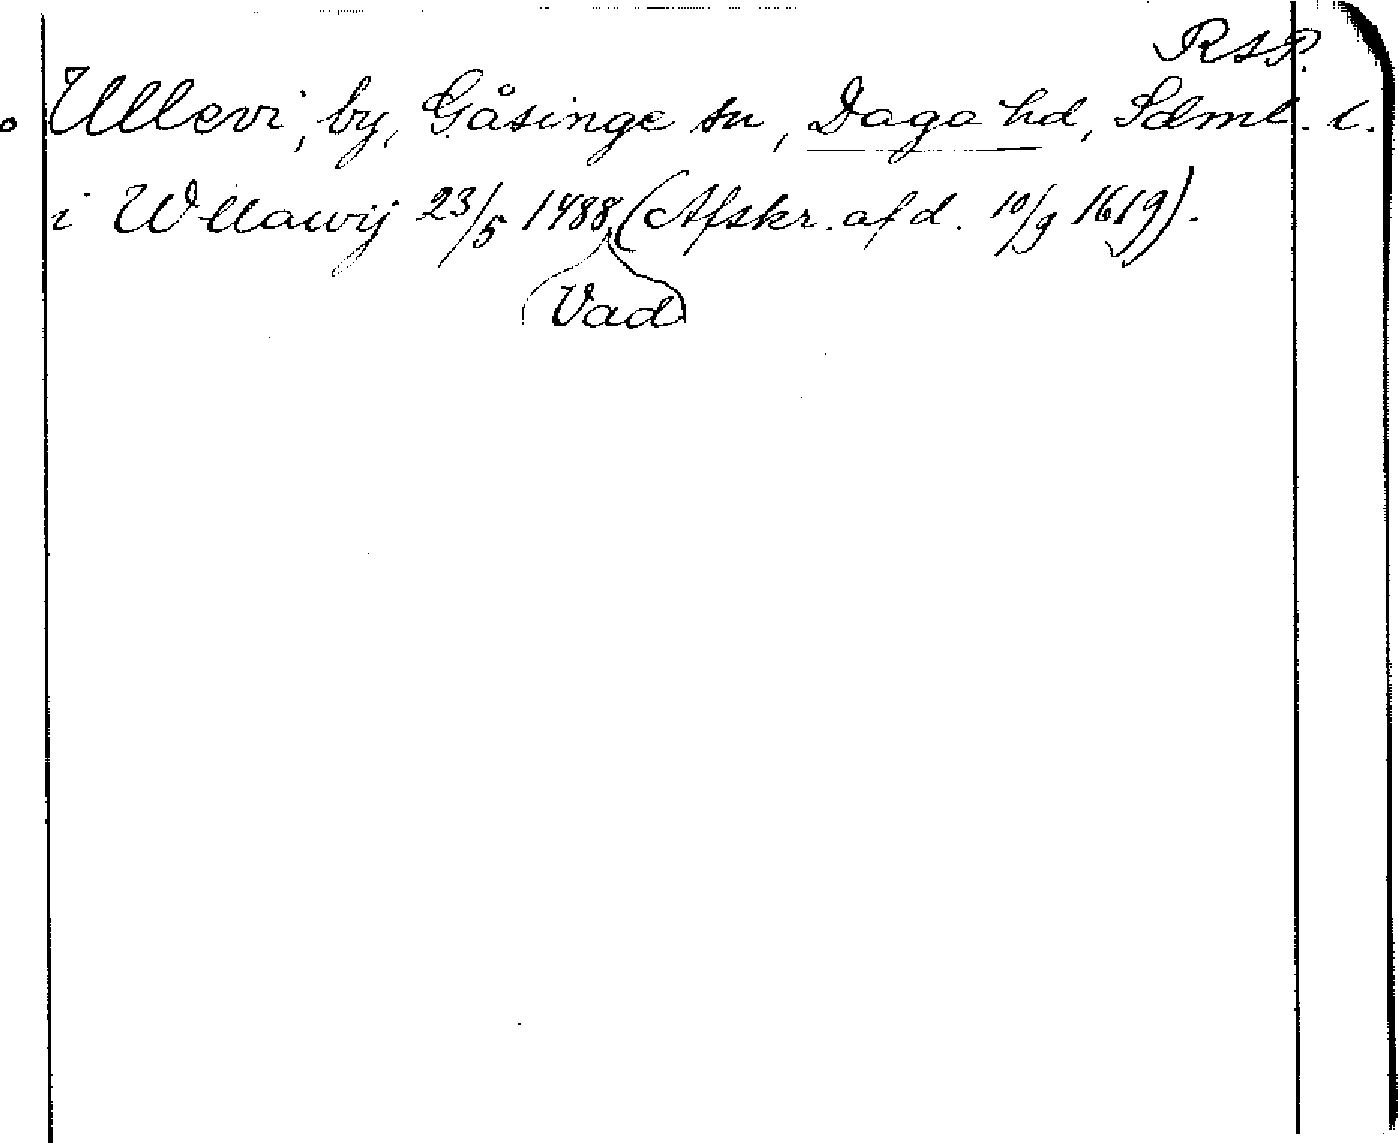 RAP.
Ullevi, by, Gåsinge sn, Daga hd, Sdml. l.
i Wllawij 23/5 1488 (Afskr. af d. 10/9 1619).
Vad